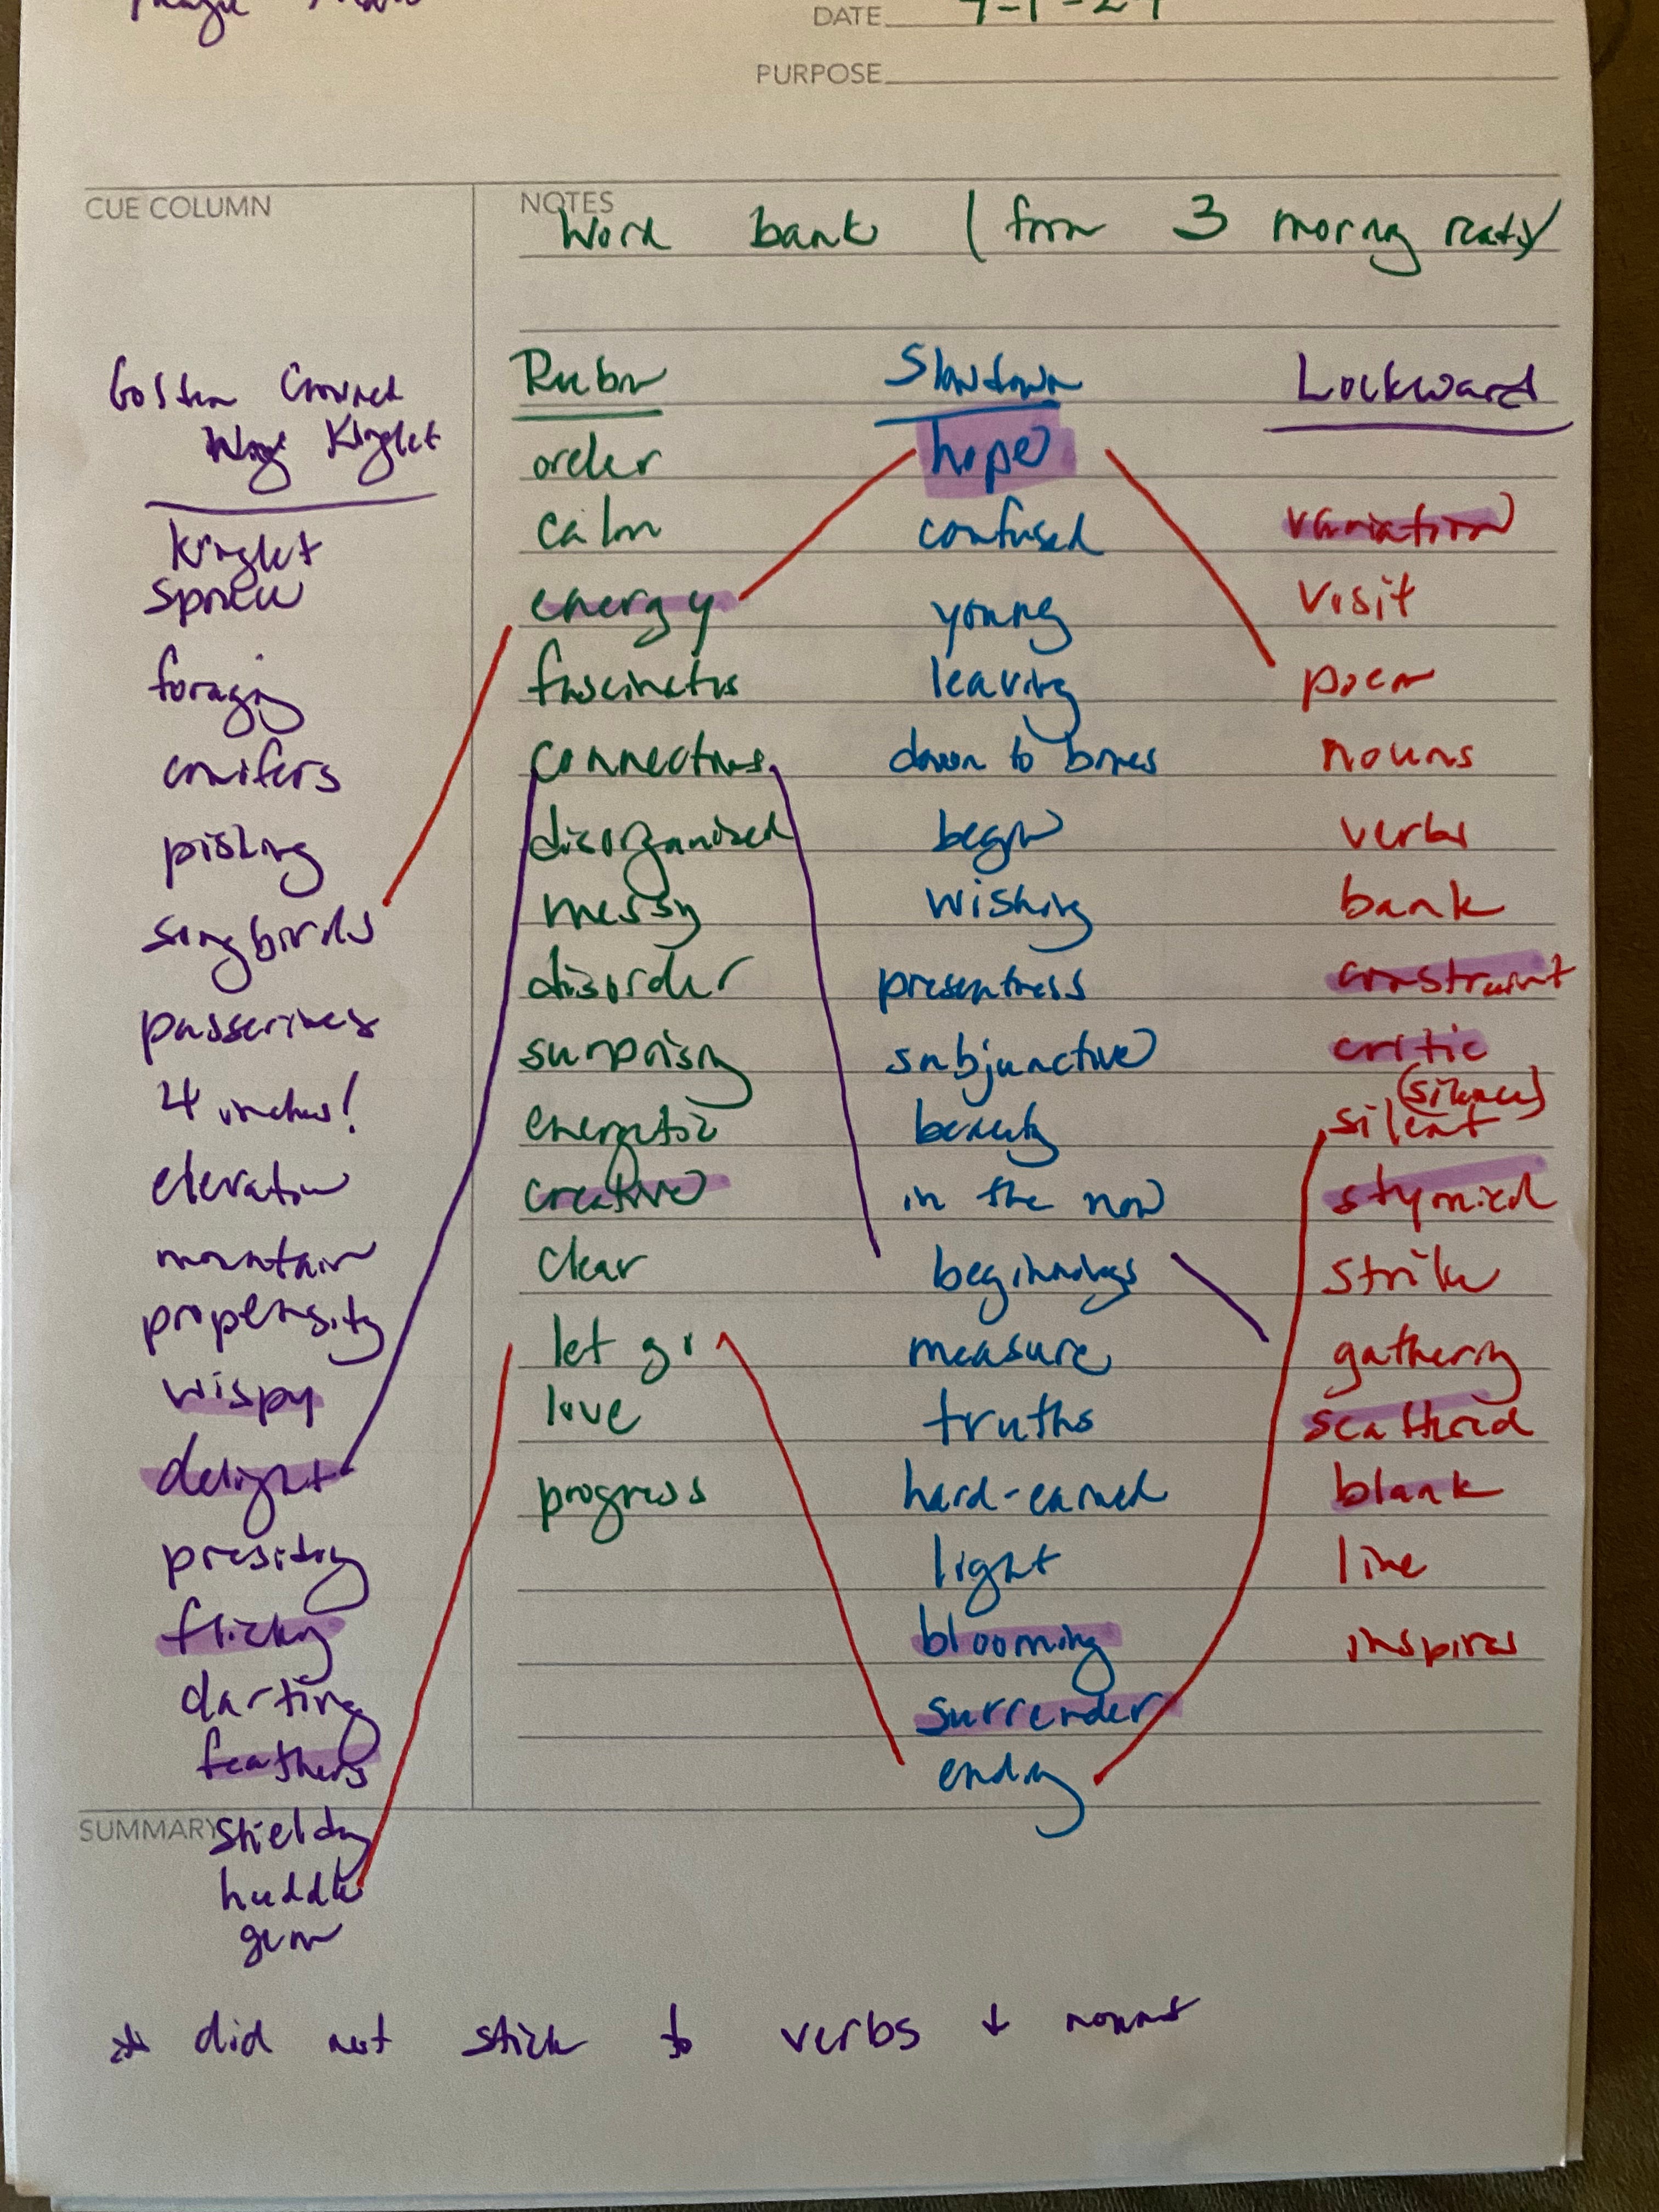 DATE
PURPOSE
CUE COLUMN
NOTES
Word bank (from 3 morning
Golden Crowned
Kinglet
kinglet
spruce
foraging
conifers
pishing
songbirds
passerines
4 inches!
elevation
mountain
propensity
wispy
delight
flicking
darting
feathers
shielding
huddle
Rubin
order
calm
energy
connections
disorganized
messy
disorder
surprising
energetic
creative
clear
let go
love
progress
Slowdown
hope
confused
young
leaving
down to bones
begin
wishing
presentness
subjunctive
beauty
in the now
beginnings
measure
truths
hard-earned
light
blooming
surrender
ending
Lockward
variation
visit
poem
nouns
verbs
bank
constraint
critic
(silence)
silent
stymied
strike
gathering
scattered
blank
line
inspires
SUMMARY
* did not stick to verbs + nouns